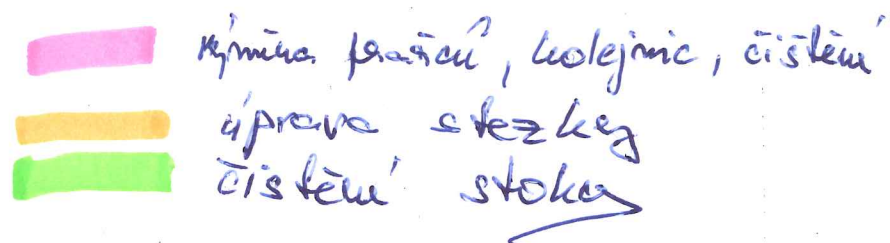 výměna pražců, kolejnic, čištění
úprava stezky
čištění stoky